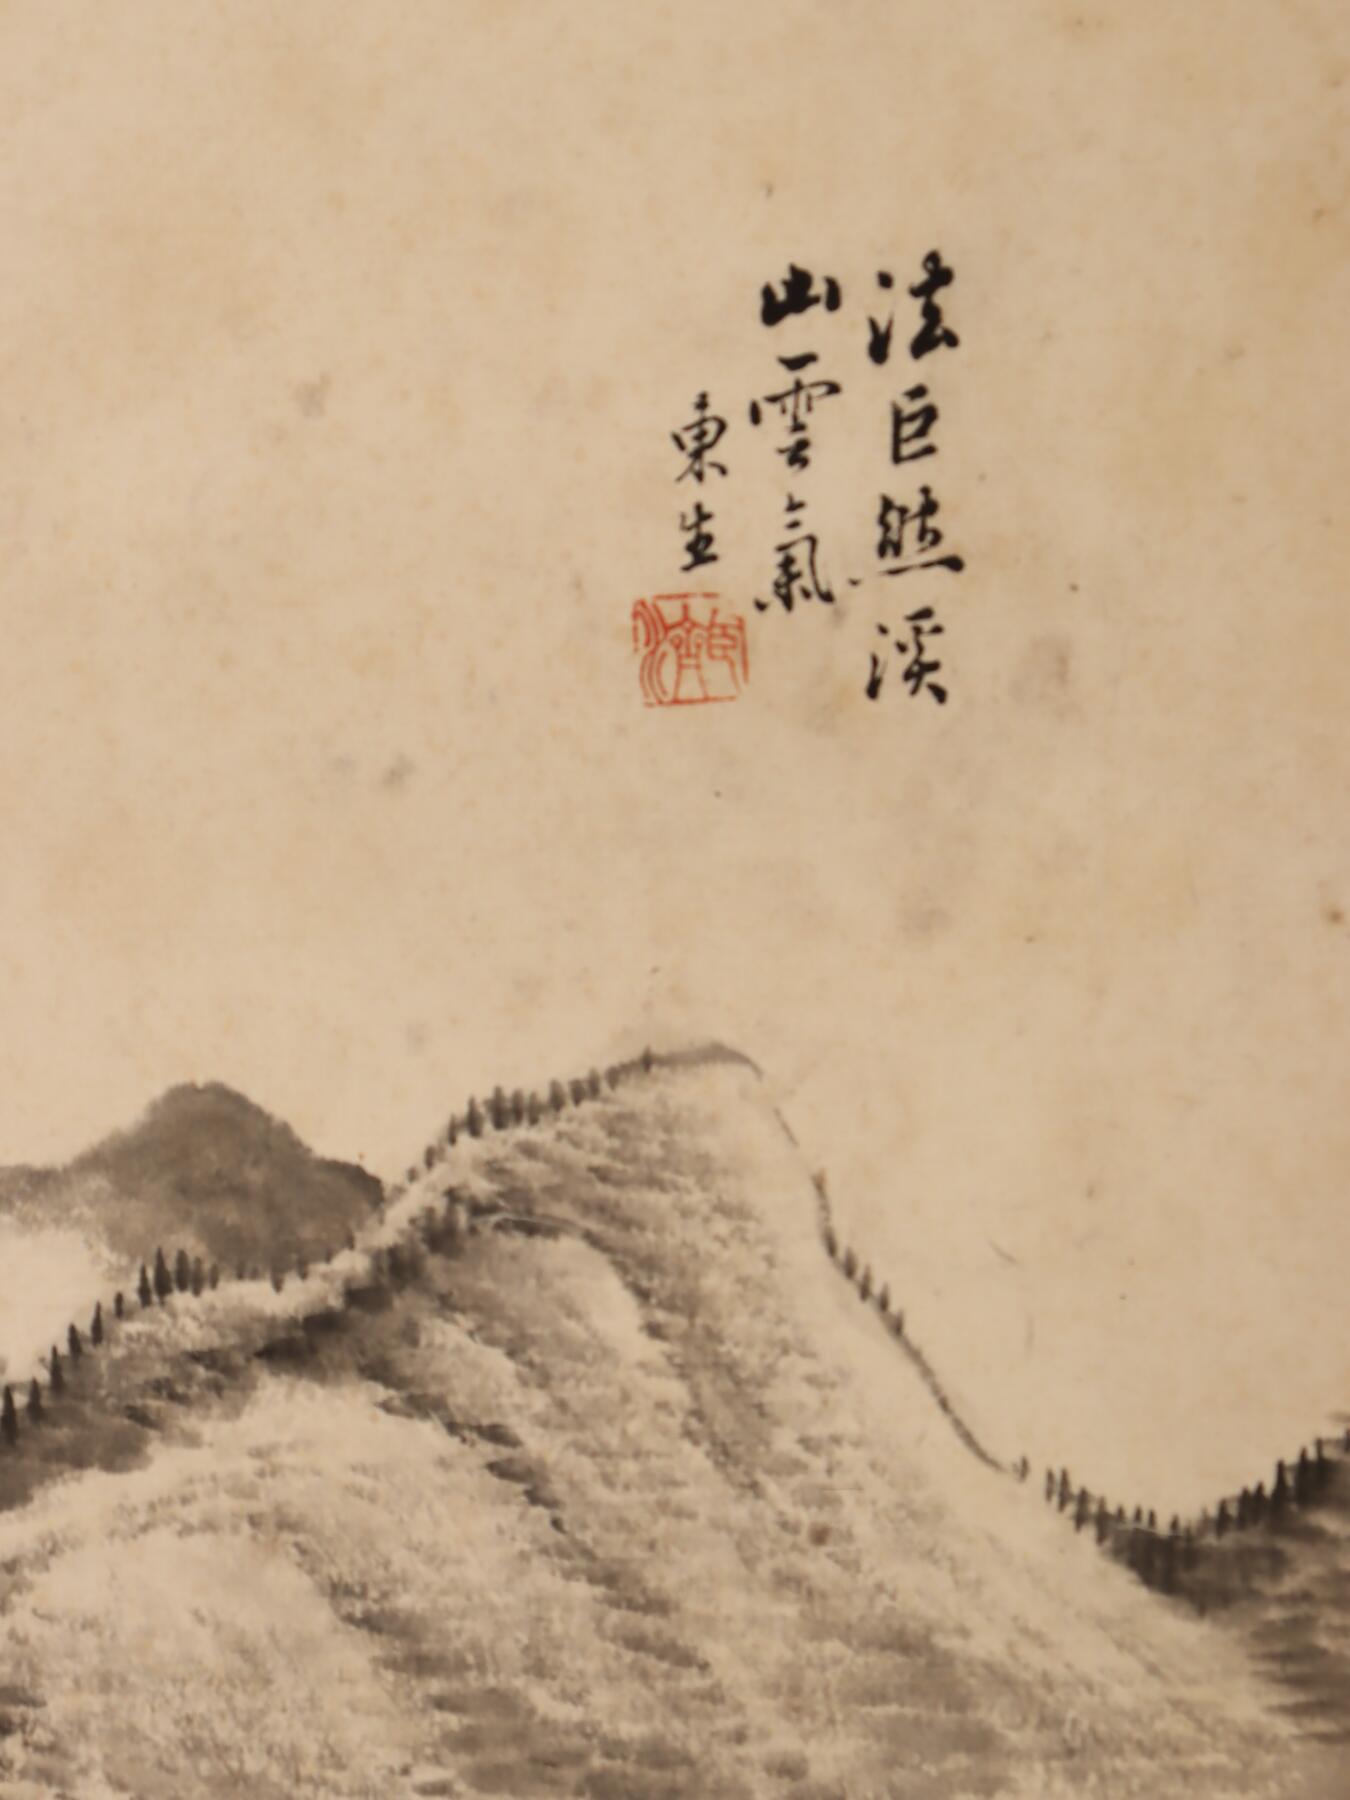 法巨然溪
山雲氣
東生